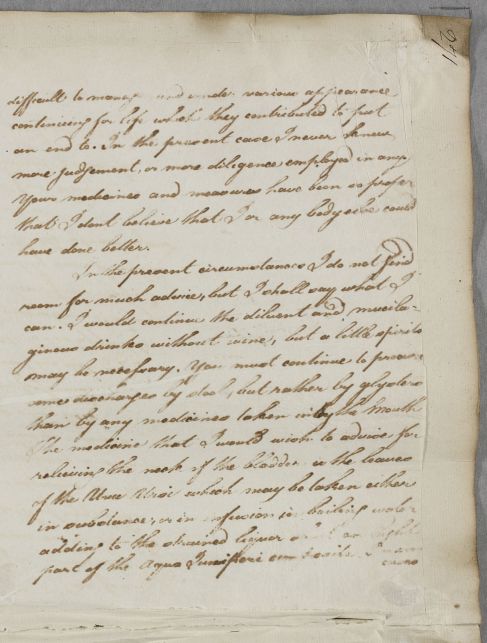 difficult to manag and under various appearance
continuing for life which they contributed to put
an end to. In the present case I never knew
more Judgement, or more diligence employed in any
Your medicines and measures have been so proper
that I dont believe that I or any body else could
have done better.
In the present circumstances I do not find
room for much advice, but I shall say what I
can. I would continue the diluent and mucila-
ginous drinks without wine, but a little spirits
may be necessary. You must continue to procure
some discharges by stool, but rather by glysters
than by any medicines taken in by the Mouth
The medicine that I would wish to advise for
relieving the neck of the bladder is the leaves
of the Uvae Ursi which may be taken either
in substance, or in infusion in boiling water
adding to the strained liquor an eight
part of the Aqua Juniperi